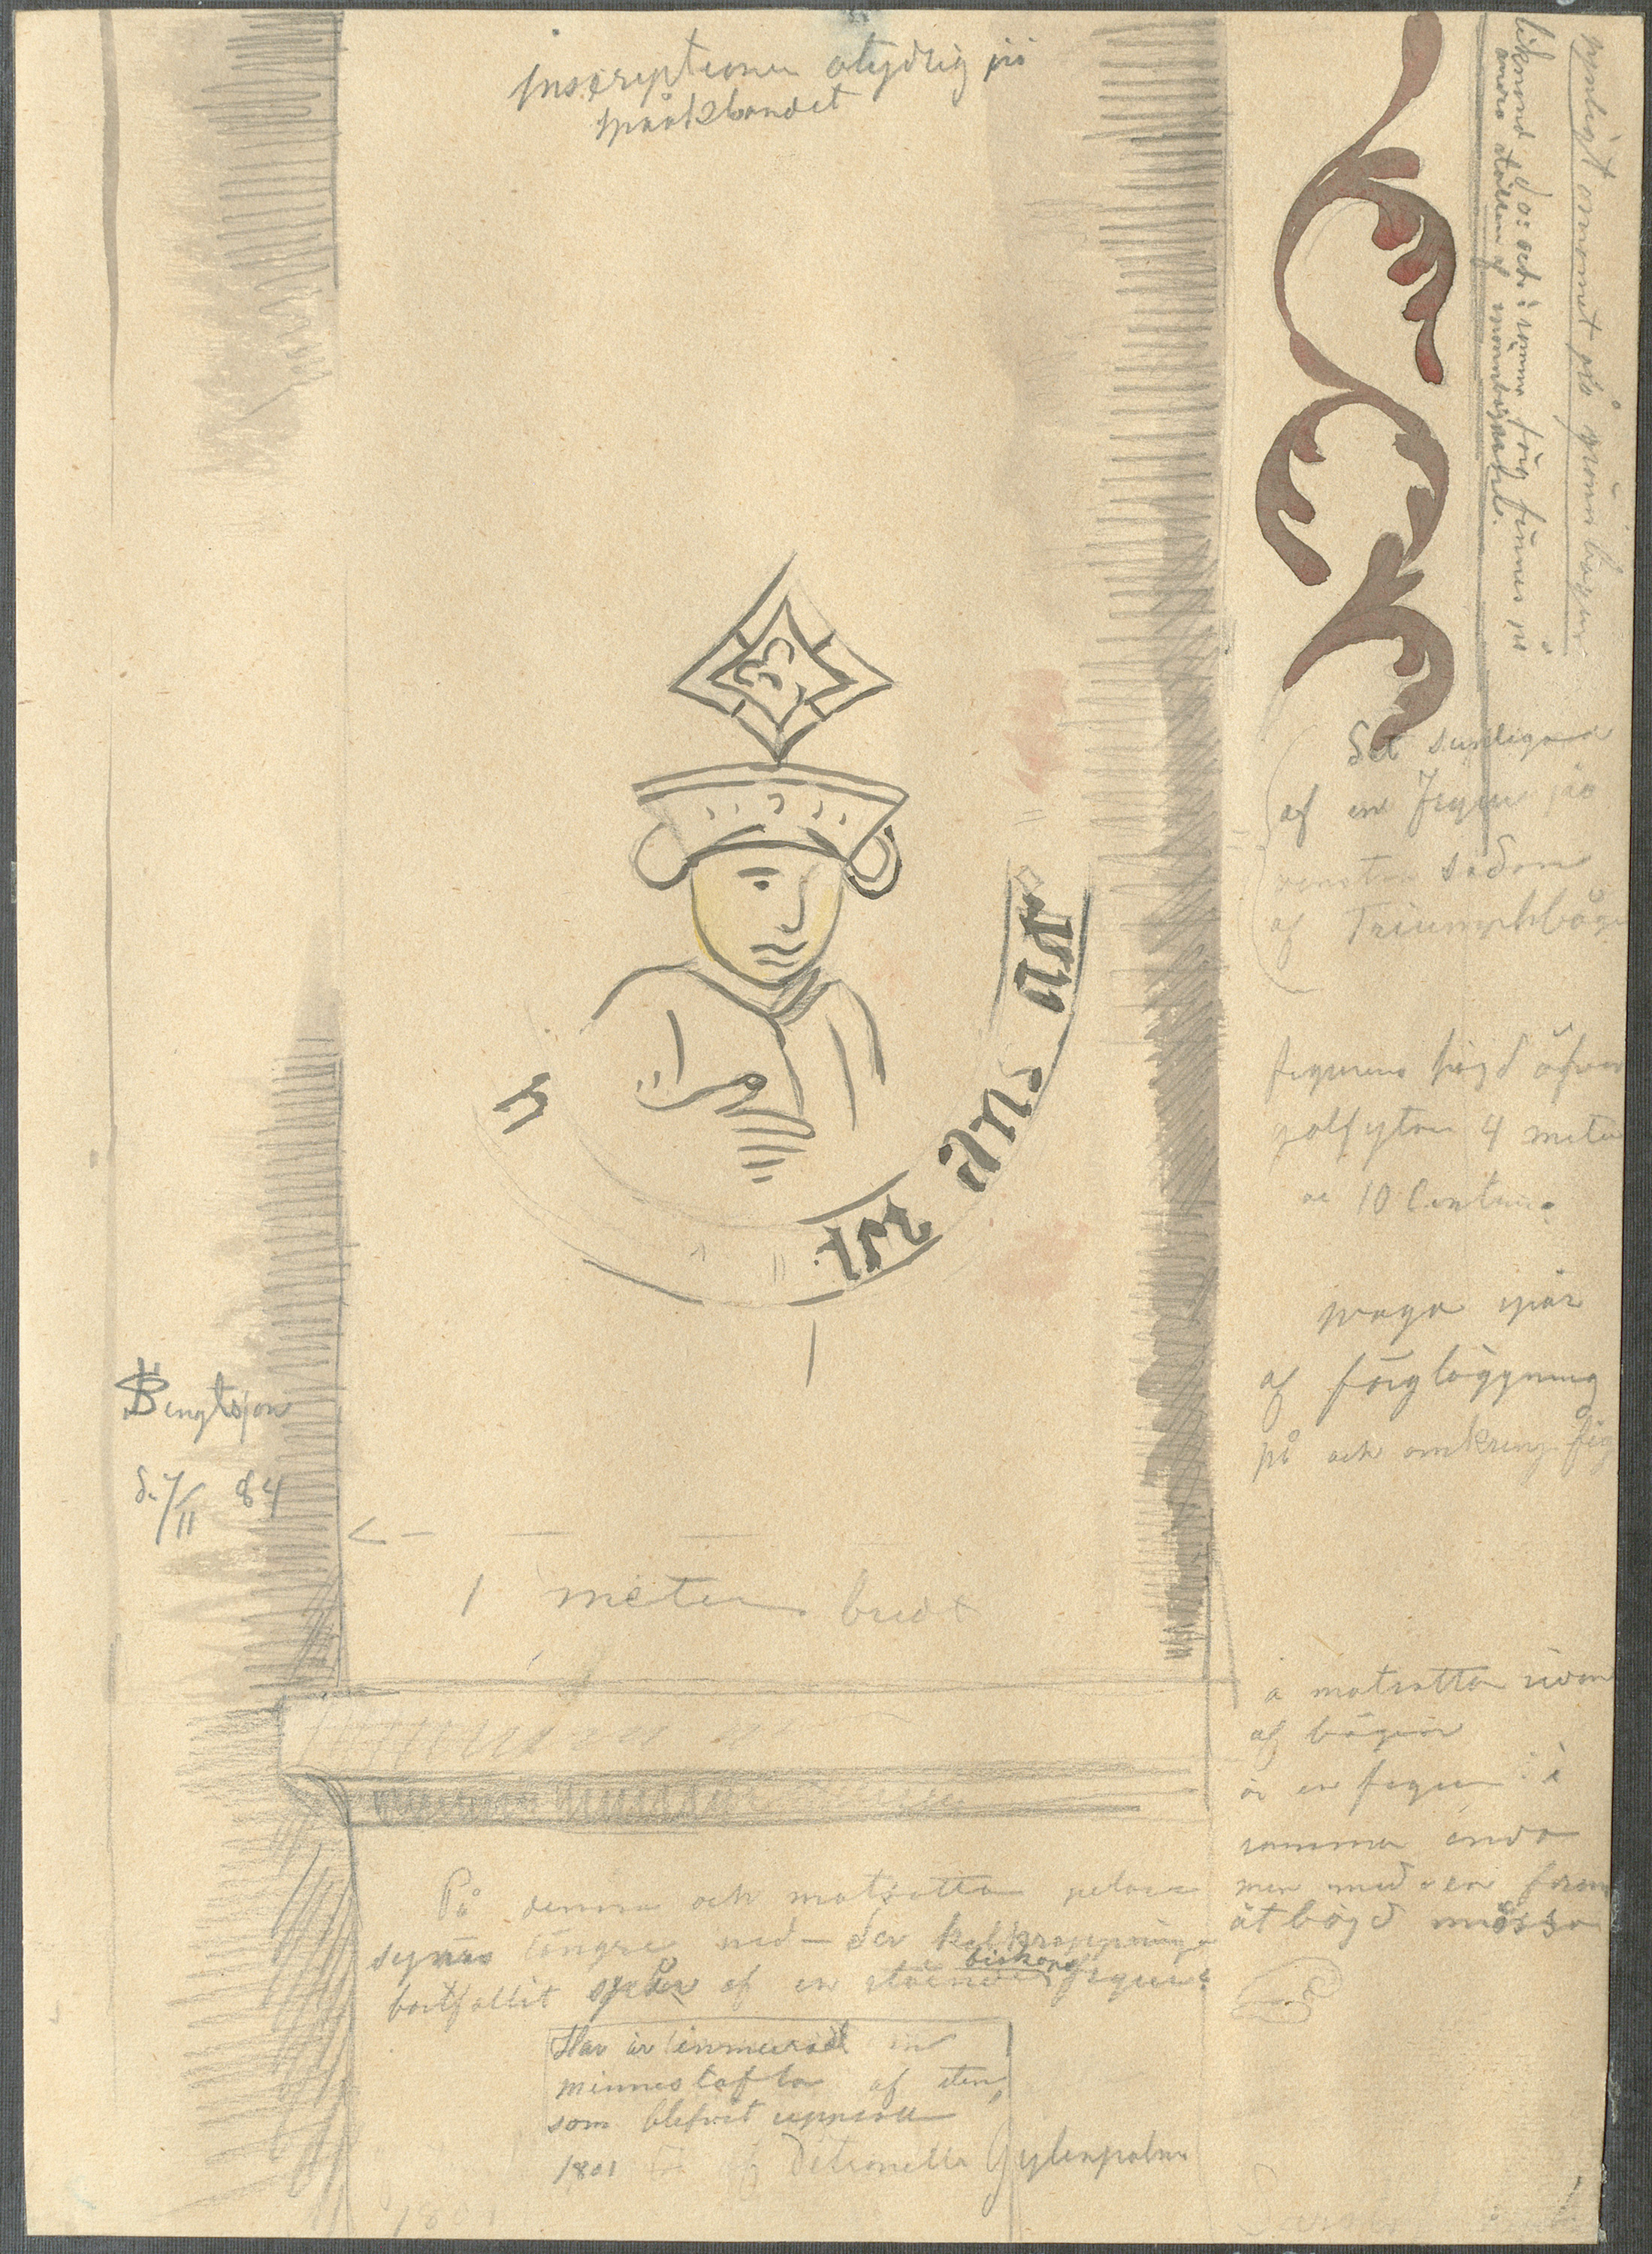 Inscriptionen otydlig på
språkbandet
synligt ornament på
liknand do: och i samma färg finnes på
andra ställen af
Det
af en Figur på
venstra sidan
af Triumphbåge
figurens högd öfver
golfytan 4 meter
10 Centim:
svaga spår
af färgläggning
på och omkring fig
Bengtsson
d. 7/11 84
1 meter bred
å motsatta sidan
af bågen
är en figur i
samma
men med en fram
åtböjd mössa
På denna och motsatta pelare
synes längre ned – der kalkrappningen
bortfallit spår af en stående biskops figur:
Här är inmurad en
minnestafla af sten,
som blefvit uppsatt
1801 af Petronella Gylenpalm
1801